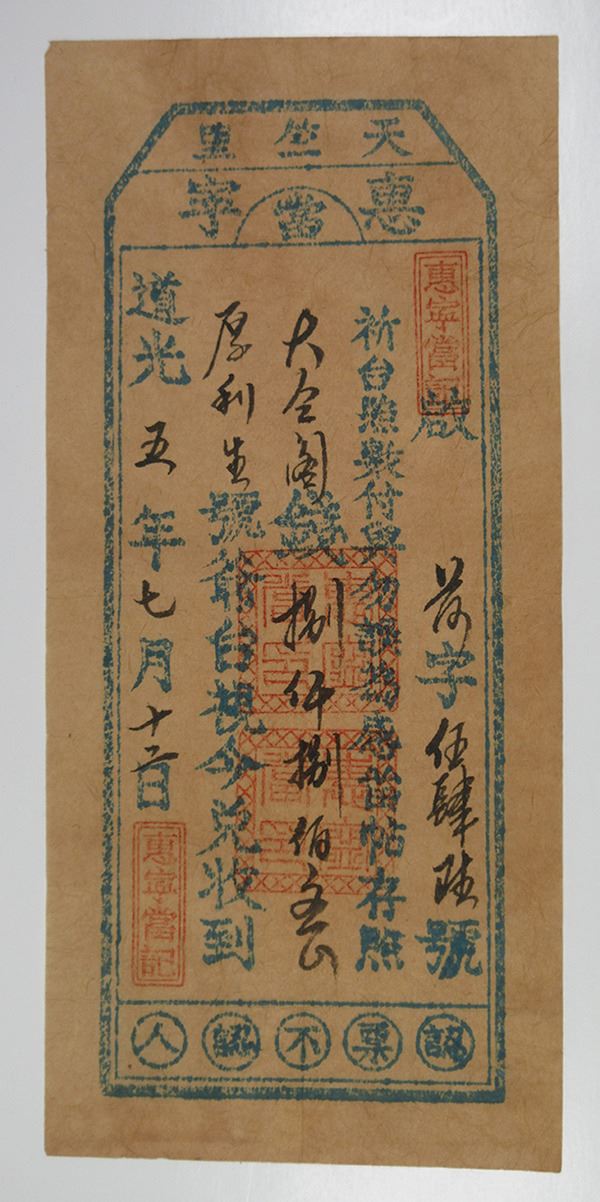 天竺里
惠當寧
惠寧當記
字伍肆陸號
祈台照數付與勿誤為感當帖存照
錢捌仟捌佰
厚利生號爺台規今兑收到
道光五年七月十六日
惠寧當記
認票不認人